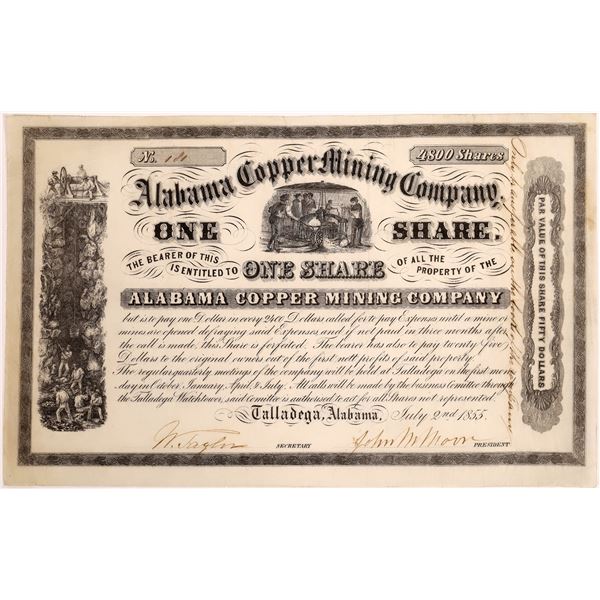 No. 181
4800 Shares
Alabama Copper Mining Company.
ONE SHARE.
THE BEARER OF THIS IS ENTITLED TO ONE SHARE OF ALL THE PROPERTY OF THE
ALABAMA COPPER MINING COMPANY
but is to pay one Dollar in every 2400 Dollars called for to pay Expenses until a mine or
mines are opened defraying said Expenses, and if not paid in three months after
the call is made, this Share is forfeited. The bearer was also to pay twenty Five
Dollars to the original owners out of the first nett profits of said property.
The regular quarterly meetings of the company will be held at Talladega on the first mon
day in October January April & July. All calls will be made by the business Comittee through
the Talladega Watchtower, said Comittee is authorised to act for all Shares not represented.
Talladega, Alabama, July 2nd 1855.
W. Taylor SECRETARY
John M Moore PRESIDENT
PAR VALUE OF THIS SHARE FIFTY DOLLARS